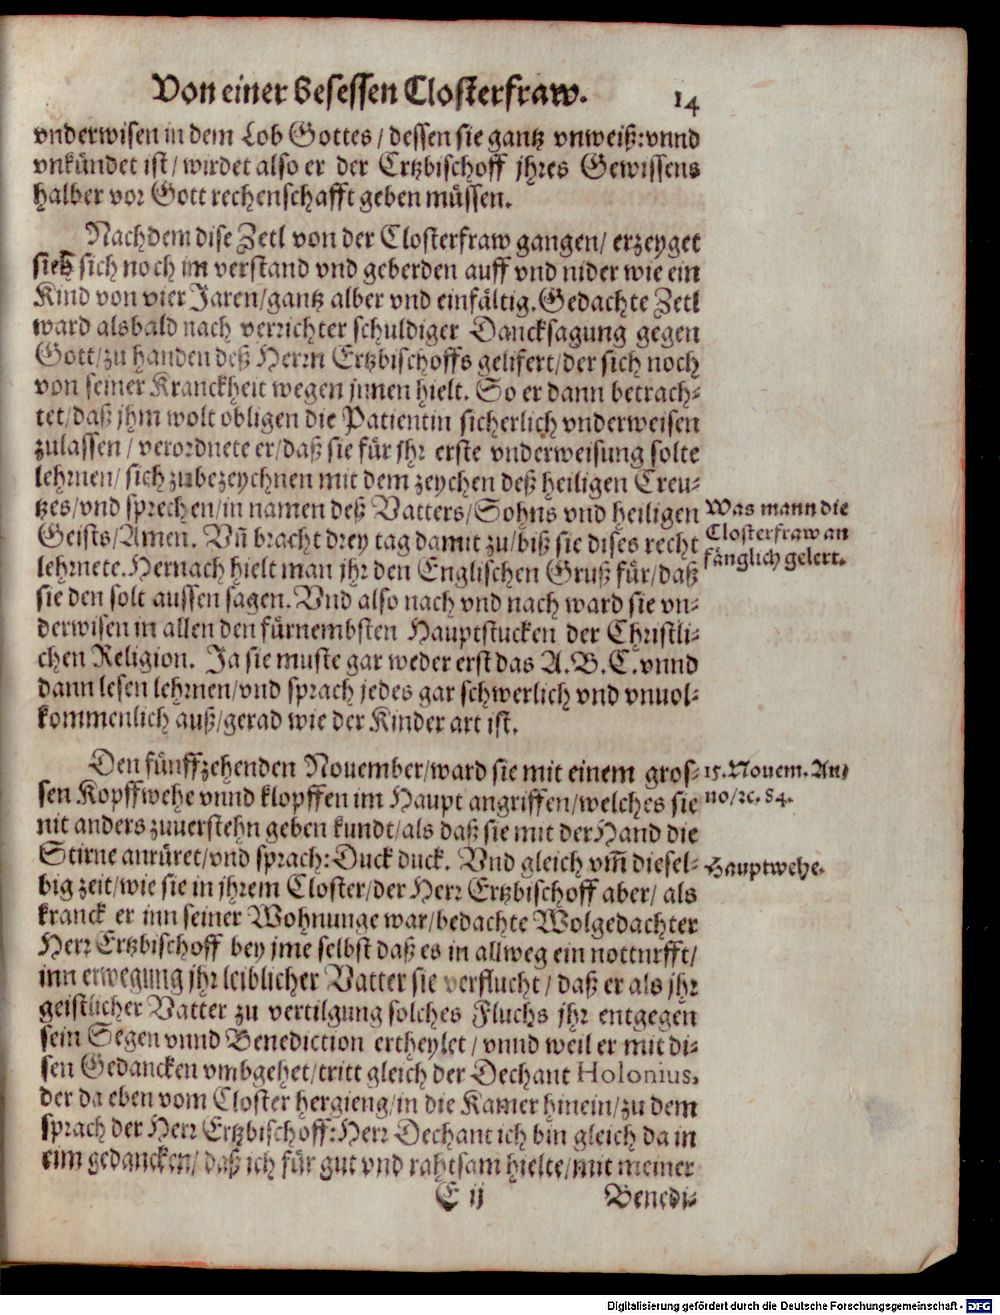 Von einer besessen Closterfraw. 14
vnderwisen in dem Lob Gottes / dessen sie gantz vnweiß: vnnd
vnkündet ist / wirdet also er der Ertzbischoff jhres Gewissens
halber vor Gott rechenschafft geben müssen.
Nachdem dise Zetl von der Closterfraw gangen / erzeyget
sich noch im verstand vnd geberden auff vnd nider wie ein
Kind von vier Jaren / gantz alber vnd einfältig. Gedachte Zetl
ward alsbald nach verrichter schuldiger Dancksagung gegen
Gott / zu handen deß Herrn Ertzbischoffs gelifert / der sich noch
von seiner Kranckheit wegen jnnen hielt. So er dann betrach-
tet / daß jhm wolt obligen die Patientin sicherlich vnderweisen
zulassen / verordnete er / daß sie für jhr erste vnderweisung solte
lehrnen / sich zubezeychnen mit dem zeychen deß heiligen Creu-
tzes / vnd sprechen / in namen deß Vatters / Sohns vnd heiligen
Geists / Amen. Vñ bracht drey tag damit zu / biß sie dises recht
lehrnete. Hernach hielt man jhr den Englischen Gruß für / daß
sie den solt aussen sagen. Vnd also nach vnd nach ward sie vn-
derwisen in allen den fürnembsten Hauptstucken der Christli-
chen Religion. Ja sie muste gar weder erst das A. B. C. vnnd
dann lesen lehrnen / vnd sprach jedes gar schwerlich vnd vnuol-
kommenlich auß / gerad wie der Kinder art ist.
Was mann die
Closterfraw an
fänglich gelert.
Den fünffzehenden Nouember / ward sie mit einem gros-
sen Kopffwehe vnnd klopffen im Haupt angriffen / welches sie
nit anders zuuerstehn geben kundt / als daß sie mit der Hand die
Stirne anrüret / vnd sprach: Duck duck. Vnd gleich vm̃ diesel-
big zeit / wie sie in jhrem Closter / der Herr Ertzbischoff aber / als
kranck er inn seiner Wohnunge war / bedachte Wolgedachter
Herr Ertzbischoff bey jme selbst daß es in allweg ein notturfft /
inn erwegung jhr leiblicher Vatter sie verflucht / daß er als jhr
geistlicher Vatter zu vertilgung solches Fluchs jhr entgegen
sein Segen vnnd Benediction ertheylet / vnnd weil er mit di-
sen Gedancken vmbgehet / tritt gleich der Dechant Holonius,
der da eben vom Closter hergieng / in die Kamer hinein / zu dem
sprach der Herr Ertzbischoff: Herr Dechant ich bin gleich da in
eim gedancken / daß ich für gut vnd rahtsam hielte / mit meiner
15. Nouem. An-
no / ꝛc. 84.
Hauptwehe.
E ij Benedi-
Digitalisierung gefördert durch die Deutsche Forschungsgemeinschaft - DFG